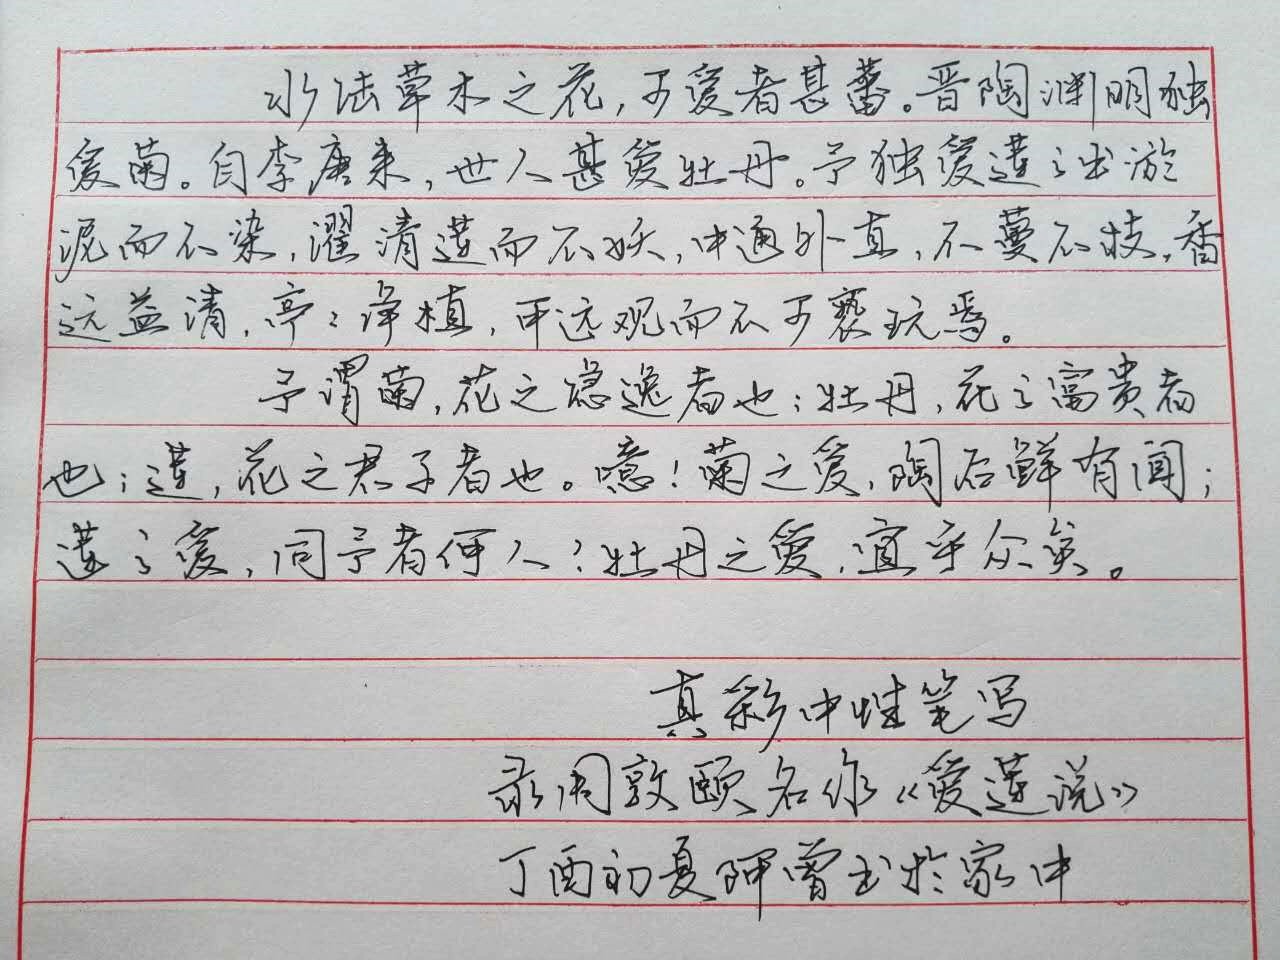 水陆草木之花，可爱者甚蕃。晋陶渊明独
爱菊。自李唐来，世人甚爱牡丹。予独爱莲之出淤
泥而不染，濯清莲而不妖，中通外直，不蔓不枝，香
远益清，亭亭净植，可远观而不可亵玩焉。
予谓菊，花之隐逸者也；牡丹，花之富贵者
也；莲，花之君子者也。噫！菊之爱，陶后鲜有闻；
莲之爱，同予者何人？牡丹之爱，宜乎众矣。
真彩中性笔写
录周敦颐名作《爱莲说》
丁酉初夏阿曾书于家中